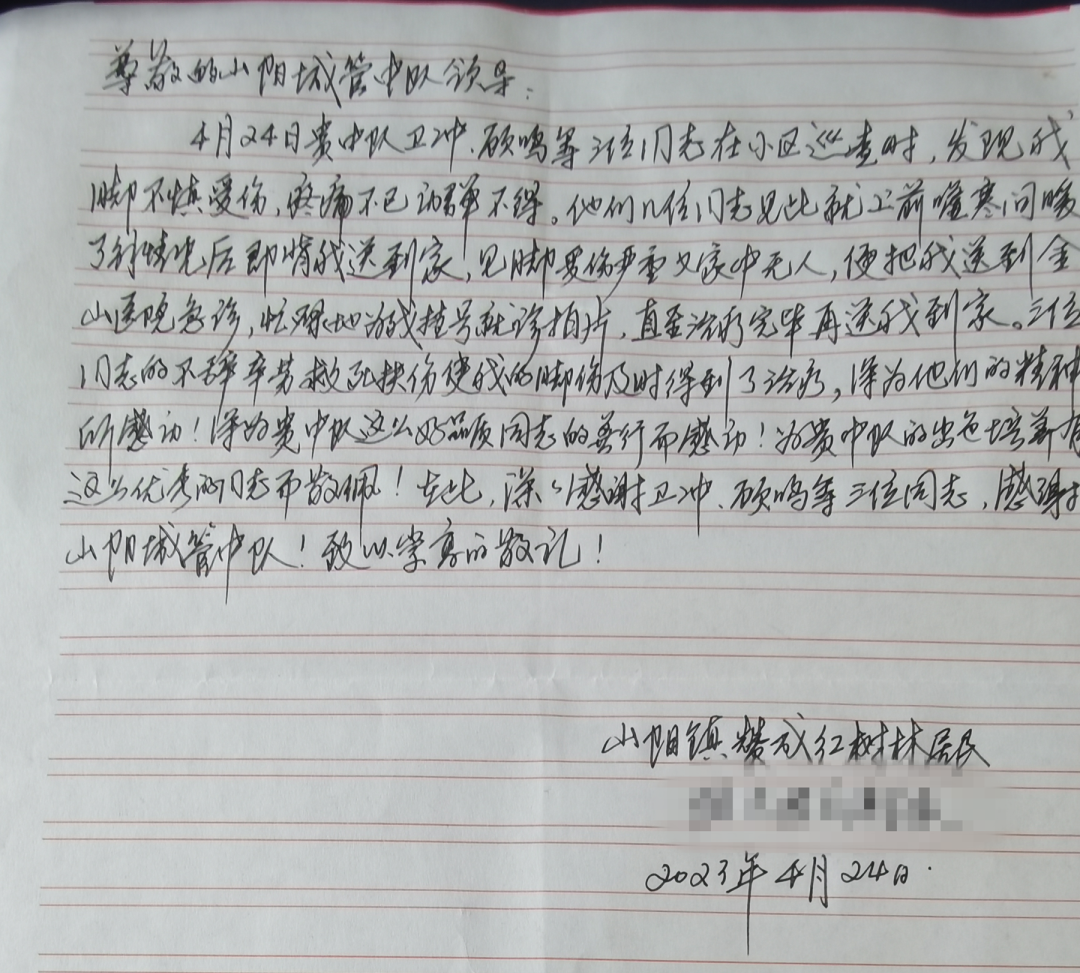 尊敬的山阳城管中队领导：
4月24日贵中队卫冲、顾鸣等三位同志在小区巡查时，发现我
脚不慎受伤，疼痛不已动弹不得。他们几位同志见此就上前嘘寒问暖
了解情况后即将我送到家，见脚受伤严重又家中无人，便把我送到金
山医院急诊，忙碌地为我挂号就诊拍片，直至治疗完毕再送我到家。三位
同志的不辞辛劳救死扶伤使我的脚伤及时得到了治疗，深为他们的精神
所感动！深为贵中队这么好品质同志的善行而感动！为贵中队的出色培养有
这么优秀的同志而敬佩！在此，深深感谢卫冲、顾鸣等三位同志，感谢
山阳城管中队！致以崇高的敬礼！
山阳镇 成红树林居民
2023年4月24日.